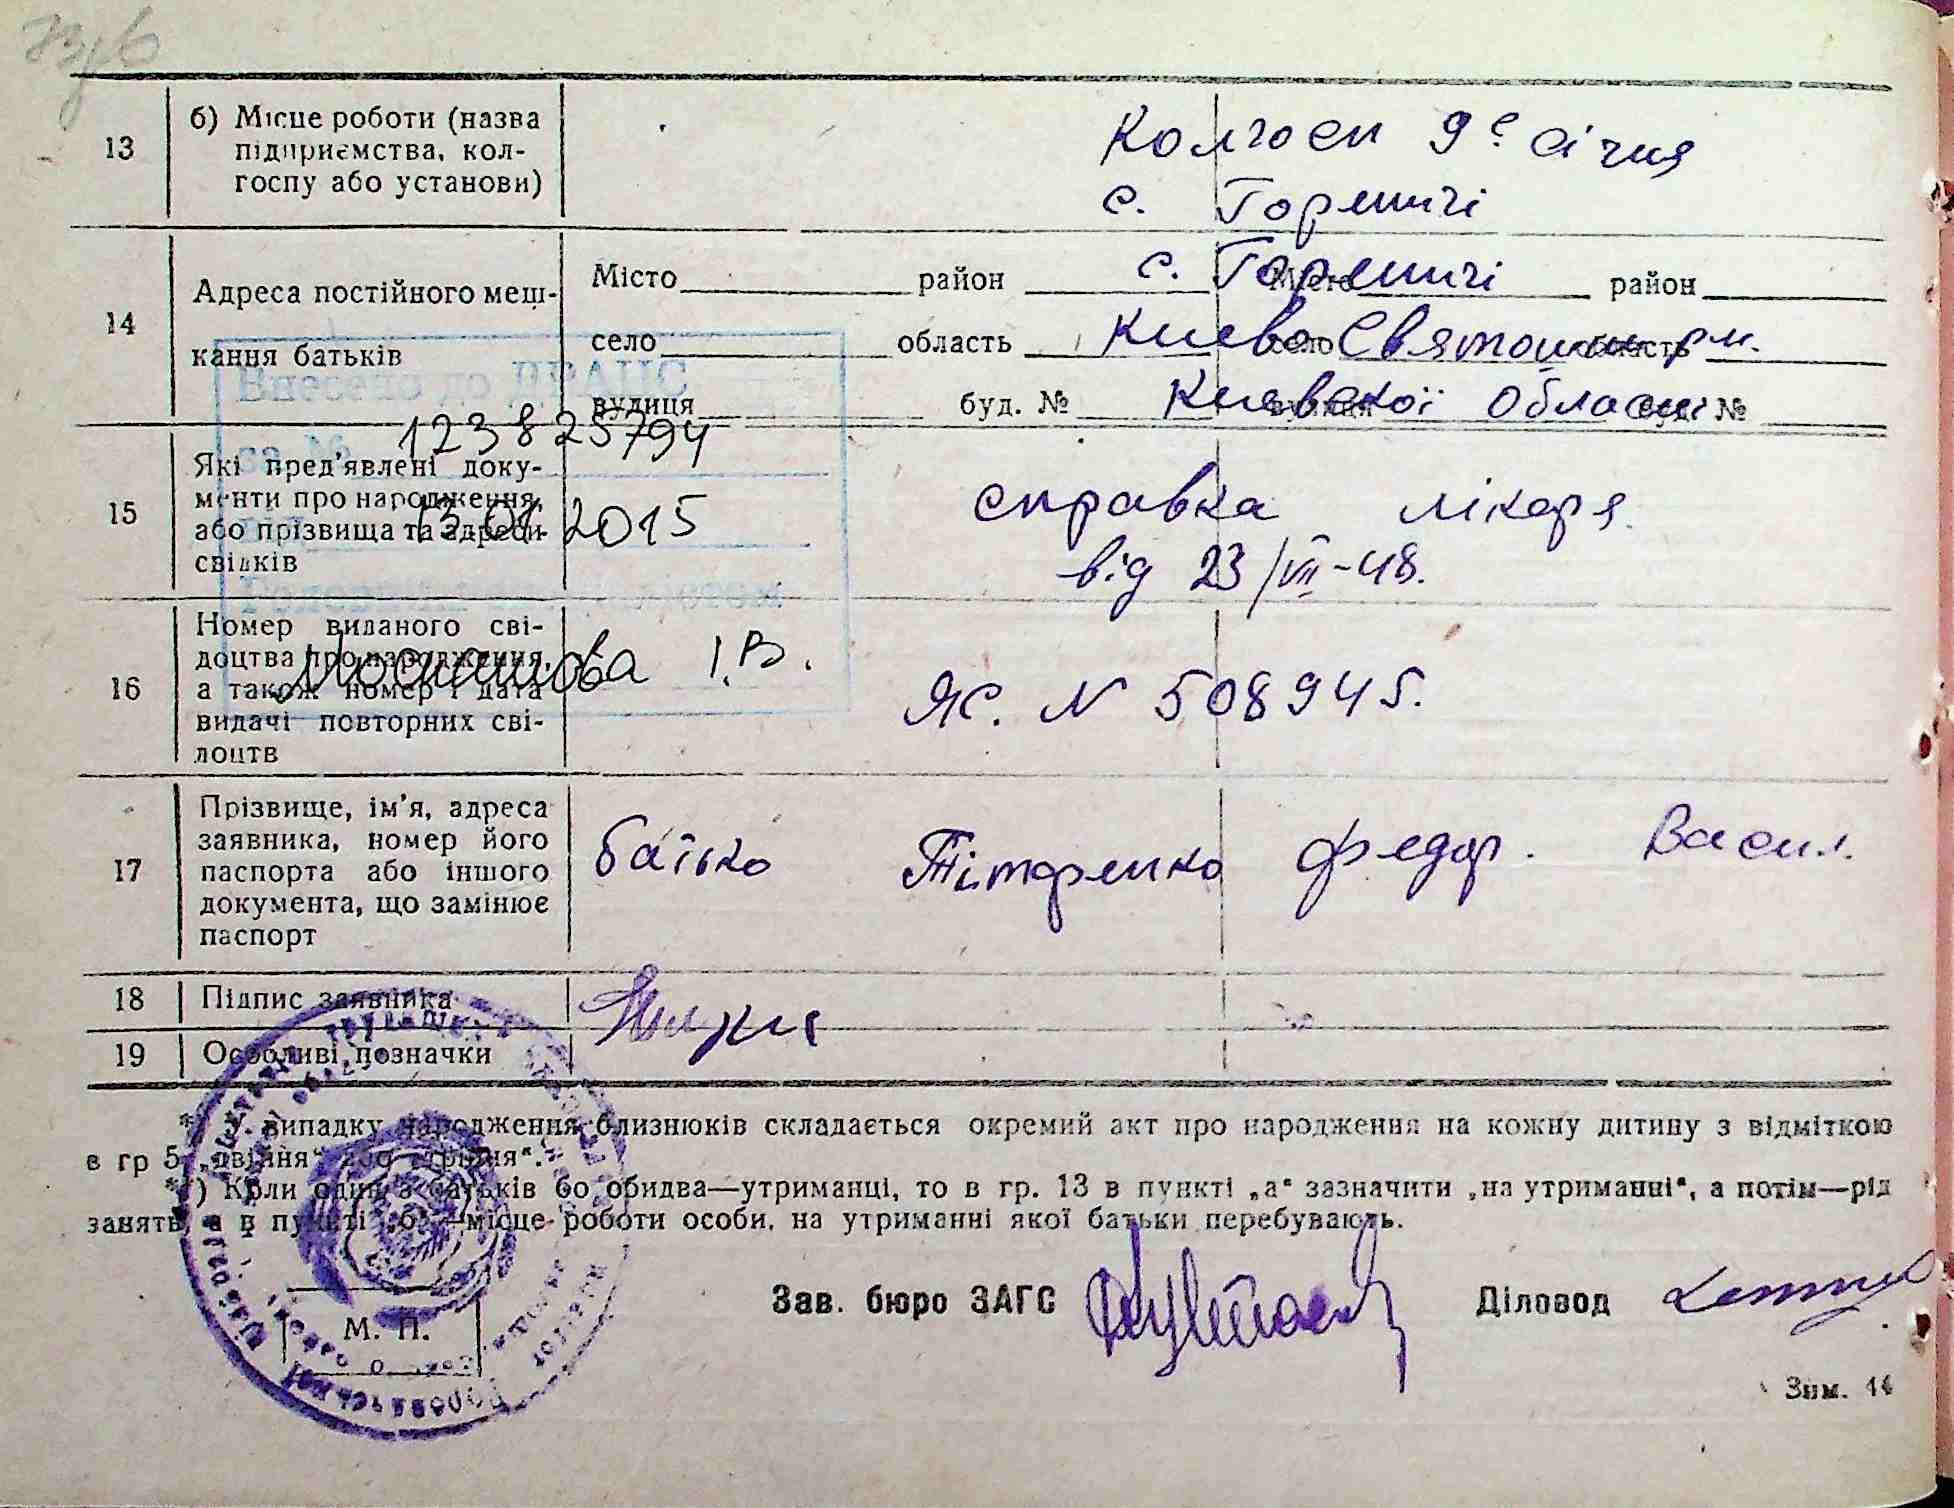 13
б) Місце роботи (назва
підприємства, кол-
госпу або установи)
Колгосп 9е січня
с. Гореничі
14
Адреса постійного меш-
кання батьків
Місто район с. Гореничі Місто район
село область Києво Святошин р-н. село область
вулиця буд. № Київської області вулиця буд. №
Внесено до ДРАЦС
за № 123825794
13.01.2015
15
Які пред’явлені доку-
менти про народження,
або прізвища та адреси
свідків
справка лікаря
від 23/VII-48.
16
Номер виданого сві-
доцтва про народження,
а також номер і дата
видачі повторних сві-
доцтв
І.В.
ЯС. N 508945.
17
Прізвище, ім’я, адреса
заявника, номер його
паспорта або іншого
документа, що замінює
паспорт
батько Тітаренко Федор. Васил.
18
Підпис заявника
19
Особливі позначки
*) У випадку народження близнюків складається окремий акт про народження на кожну дитину з відміткою
в гр 5 „двійня“ або „трійня“.
**) Коли один з батьків бо обидва—утриманці, то в гр. 13 в пункті „а“ зазначити „на утриманні“, а потім—рід
занять, а в пункті „б“—місце роботи особи, на утриманні якої батьки перебувають.
М. П.
Зав. бюро ЗАГС
Діловод
Зим. 14